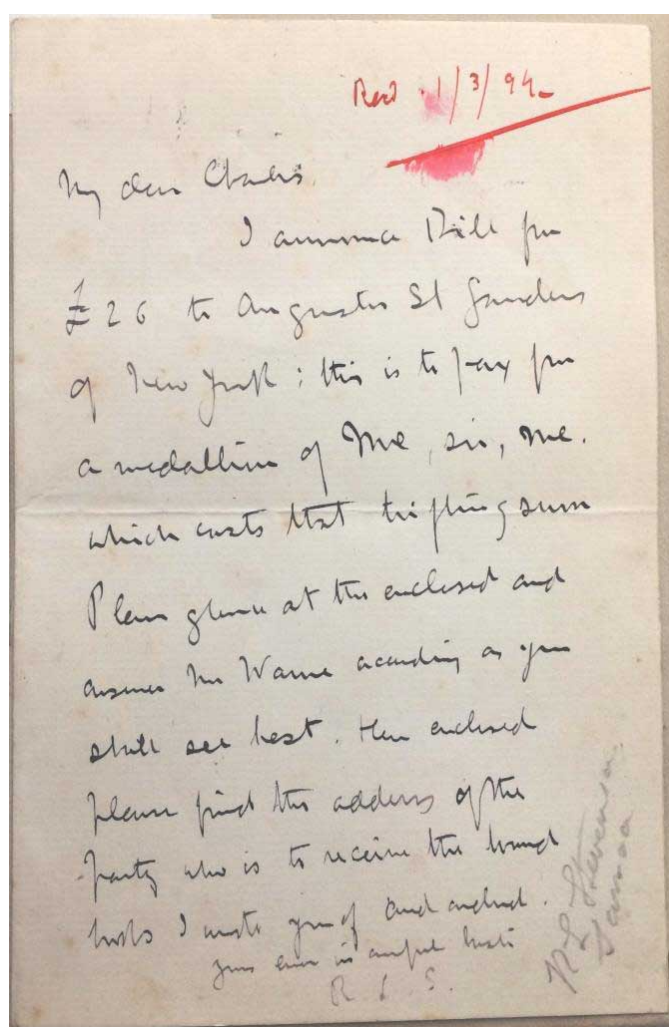 Recd. 1/3/94.
My dear Charles
I announce Bill for
£26 to Augustus St Gaudens
of New York: this is to pay for
a medallion of Me, sir, me.
which costs that trifling sum
Please glance at the enclosed and
answer Mr Warne according as you
shall see best. Here enclosed
please find the address of the
party who is to receive the bound
books I wrote you of and
yours ever in awful haste
R L S.
R L Stevenson
Samoa